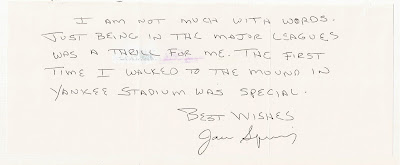 I AM NOT MUCH WITH WORDS.
JUST BEING IN THE MAJOR LEAGUES
WAS A THRILL FOR ME. THE FIRST
TIME I WALKED TO THE MOUND IN
YANKEE STADIUM WAS SPECIAL.
BEST WISHES